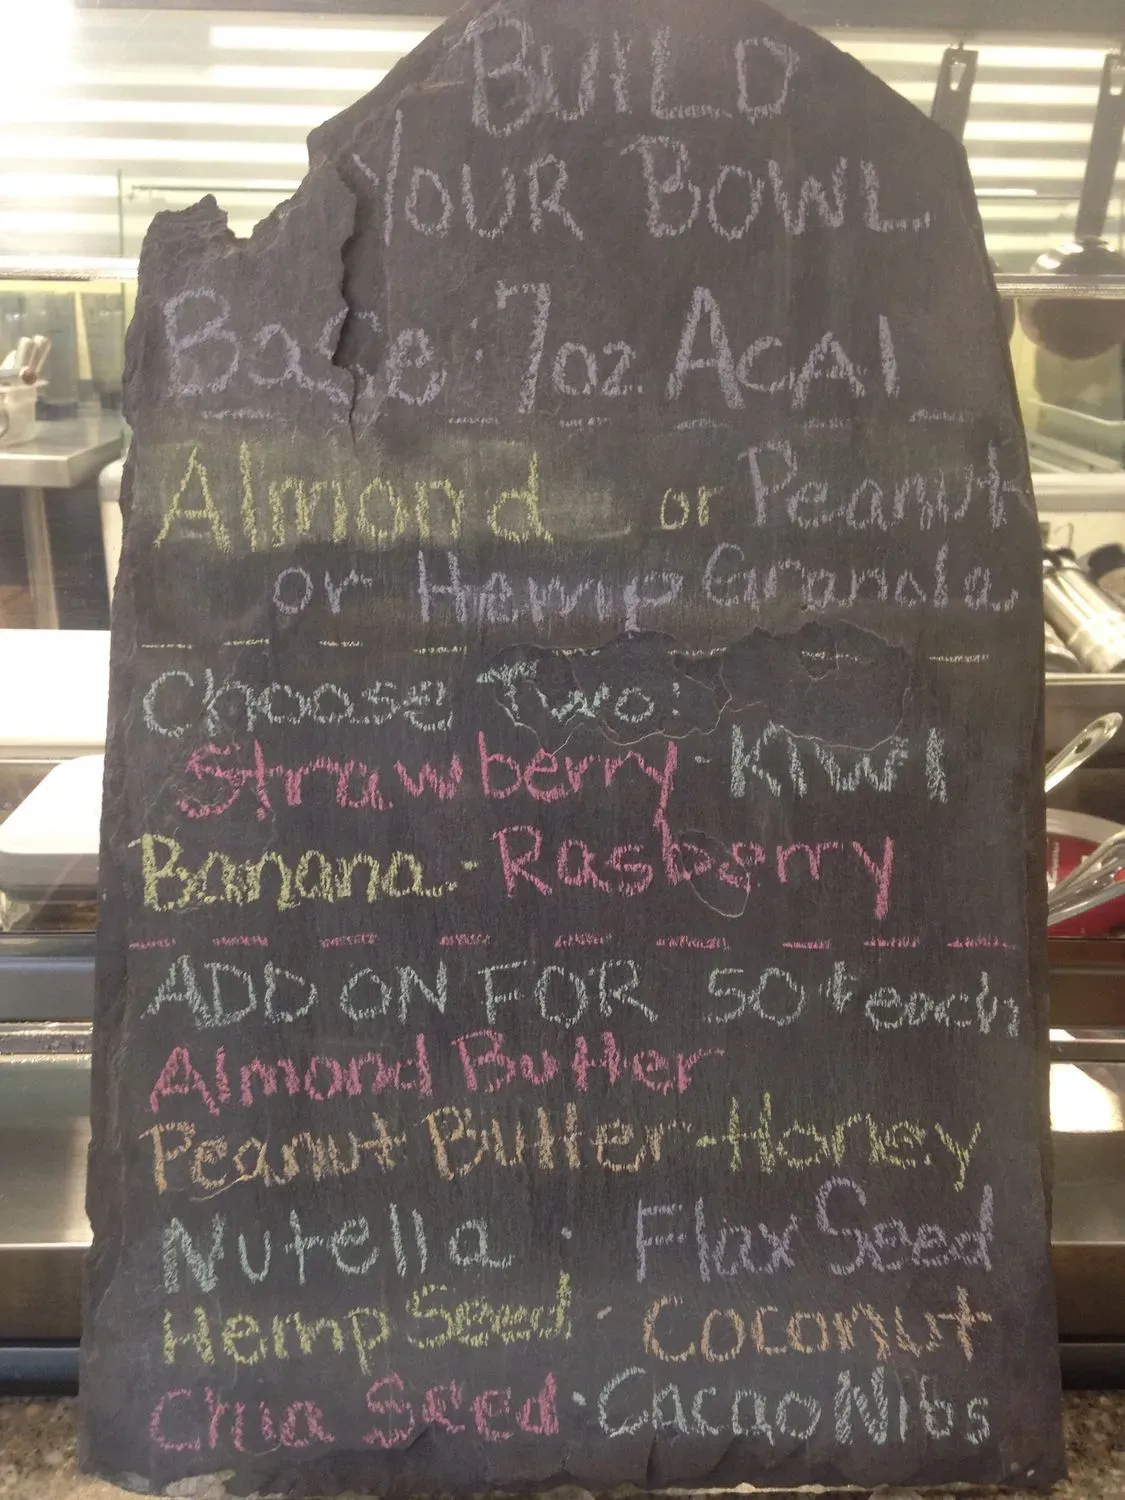 BUILD
YOUR BOWL
Base: 7oz. ACAI
Almond or Peanut
or Hemp Granola
Choose Two:
Strawberry · KIWI
Banana · Rasberry
ADD ON FOR 50¢ each
Almond Butter
Peanut Butter · Honey
Nutella · Flax Seed
Hemp Seed · Coconut
Chia Seed · Cacao Nibs